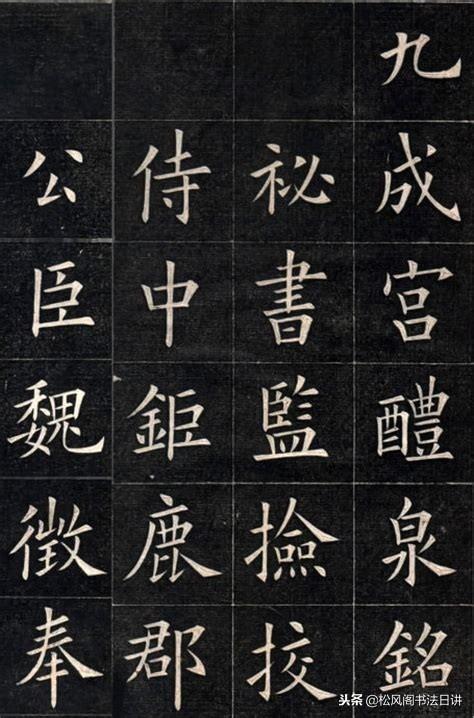 九成宮醴泉銘
祕書監撿挍
侍中鉅鹿郡
公臣魏徵奉
头条@松风阁书法日讲